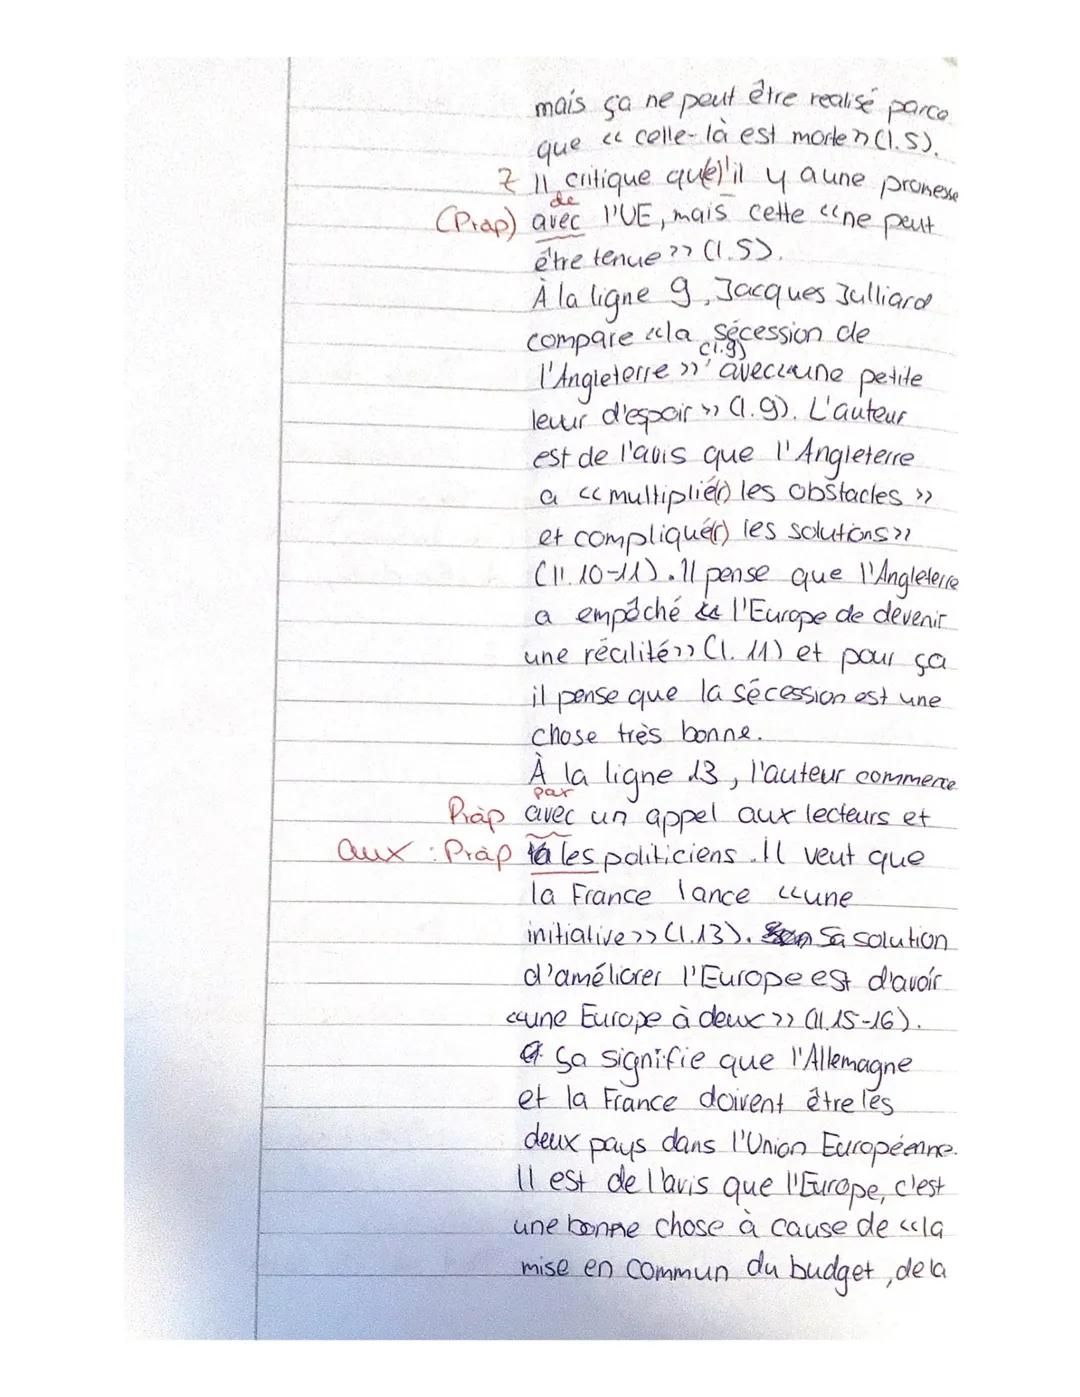 mais ça ne peut être realisé parce
que « celle-là est morte » (l. 5).
Z Il critique qu(e)'il y a une promesse
de
(Präp) avec l'UE, mais cette « ne peut
être tenue » (l. 5).
À la ligne 9, Jacques Julliard
compare « la sécession de
(l.9)
l'Angleterre » avec « une petite
leuur d'espoir » (l. 9). L'auteur
est de l'avis que l'Angleterre
a « multiplié(r) les obstacles »
et compliqué(r) les solutions »
(ll. 10-11). Il pense que l'Angleterre
a empêché l'Europe de devenir
une réalité » (l. 11) et pour ça
il pense que la sécession est une
chose très bonne.
À la ligne 13, l'auteur commence
par
Präp avec un appel aux lecteurs et
aux : Präp à les politiciens. Il veut que
la France lance « une
initiative » (l. 13). Sa solution
d'améliorer l'Europe est d'avoir
« une Europe à deux » (ll. 15-16).
Ça signifie que l'Allemagne
et la France doivent être les
deux pays dans l'Union Européenne.
Il est de l'avis que l'Europe, c'est
une bonne chose à cause de « la
mise en commun du budget, de la